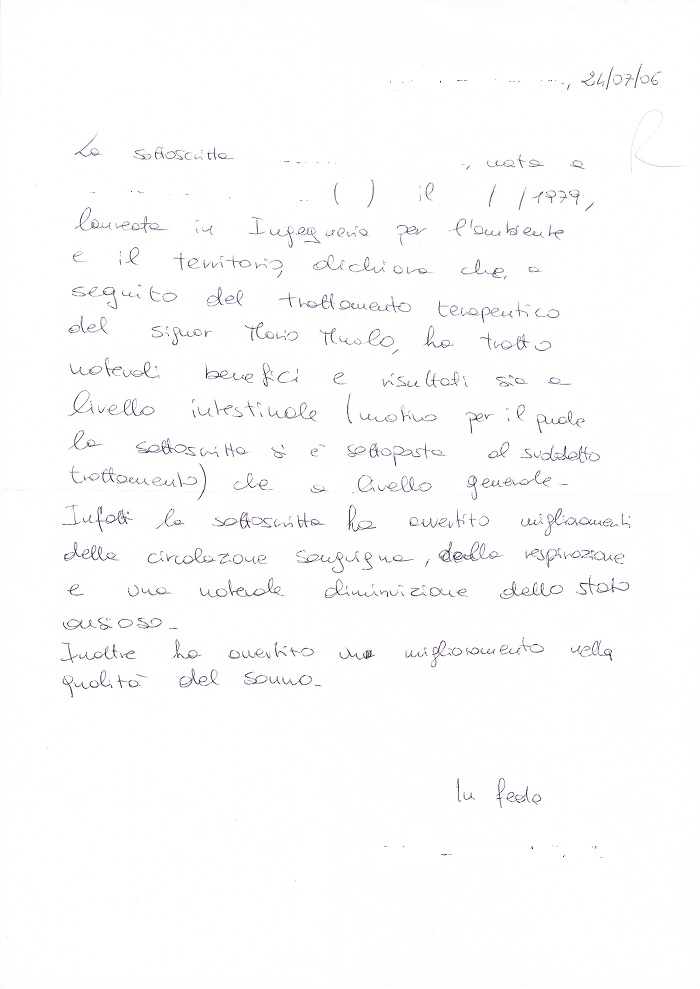 , 24/07/06
R
La sottoscritta , nata a
( ) il / /1979,
laureata in Ingegneria per l'ambiente
e il territorio, dichiara che, a
seguito del trattamento terapeutico
del signor Mario Muolo, ha tratto
notevoli benefici e risultati sia a
livello intestinale (motivo per il quale
la sottoscritta si è sottoposta al suddetto
trattamento) che a livello generale-
Infatti la sottoscritta ha avvertito miglioramenti
della circolazone sanguigna, della respirazione
e una notevole diminuizione dello stato
ansioso-
Inoltre ha avvertito un miglioramento nella
qualità del sonno-
In fede